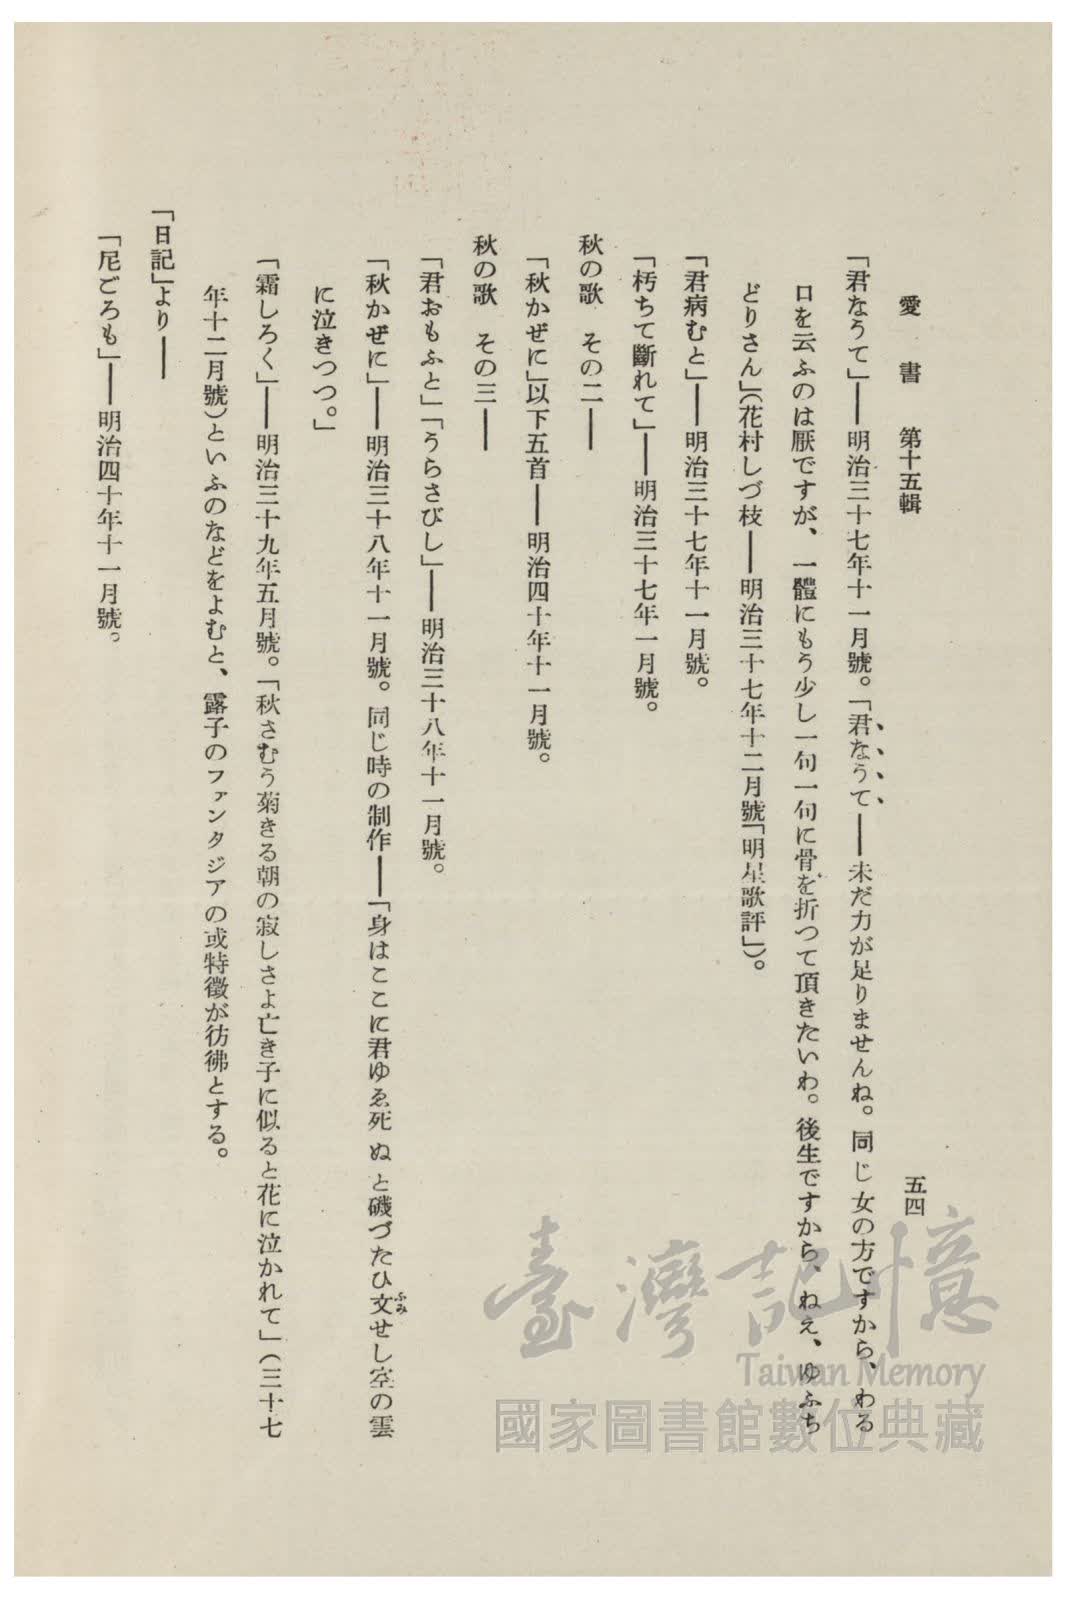 愛書 第十五輯
五四
「君なうて」――明治三十七年十一月號。「君なうて――未だ力が足りませんね。同じ女の方ですから、わる
口を云ふのは厭ですが、一體にもう少し一句一句に骨を折つて頂きたいわ。後生ですから、ねえ、ゆふち
どりさん」(花村しづ枝――明治三十七年十二月號「明星歌評」)。
「君病むと」――明治三十七年十一月號。
「朽ちて斷れて」――明治三十七年一月號。
秋の歌 その二――
「秋かぜに」以下五首――明治四十年十一月號。
秋の歌 その三――
「君おもふと」「うらさびし」――明治三十八年十一月號。
「秋かぜに」――明治三十八年十一月號。同じ時の制作――「身はここに君ゆゑ死ぬと磯づたひ文せし空の雲
ふみ
に泣きつつ。」
「霜しろく」――明治三十九年五月號。「秋さむう菊きる朝の寂しさよ亡き子に似ると花に泣かれて」(三十七
年十二月號)といふのなどをよむと、露子のファンタジアの或特徵が彷彿とする。
「日記」より――
「尼ごろも」――明治四十年十一月號。
臺灣記憶
Taiwan Memory
國家圖書館數位典藏